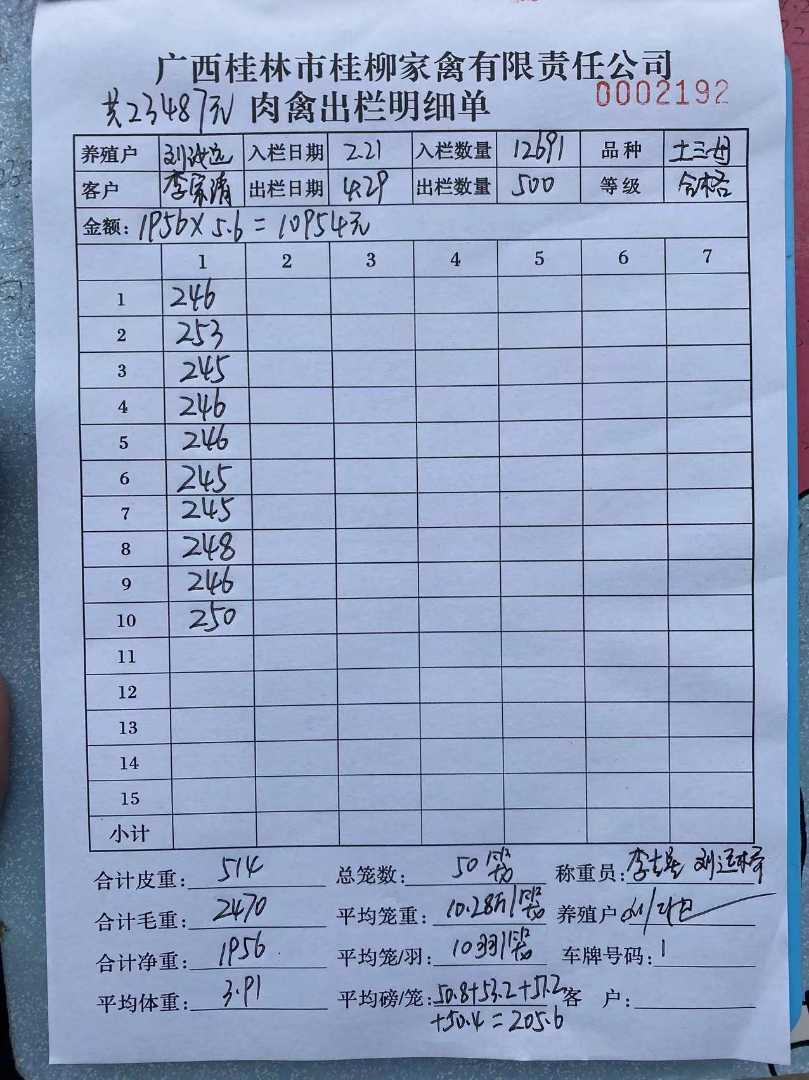 广西桂林市桂柳家禽有限责任公司
共23487元 肉禽出栏明细单 0002192
养殖户 刘 入栏日期 2.21 入栏数量 12691 品种 土三母
客户 李家清 出栏日期 4.29 出栏数量 500 等级 合格
金额: 1956×5.6=10954元
1 2 3 4 5 6 7
1 246
2 253
3 245
4 246
5 246
6 245
7 245
8 248
9 246
10 250
11
12
13
14
15
小计
合计皮重: 514 总笼数: 50 称重员: 李 刘
合计毛重: 2470 平均笼重: 10.28斤/ 养殖户
合计净重: 1956 平均笼/羽: 10羽/ 车牌号码: 1
平均体重: 3.91 平均磅/笼: 50.8+53.2+51.2 客 户:
+50.4=205.6